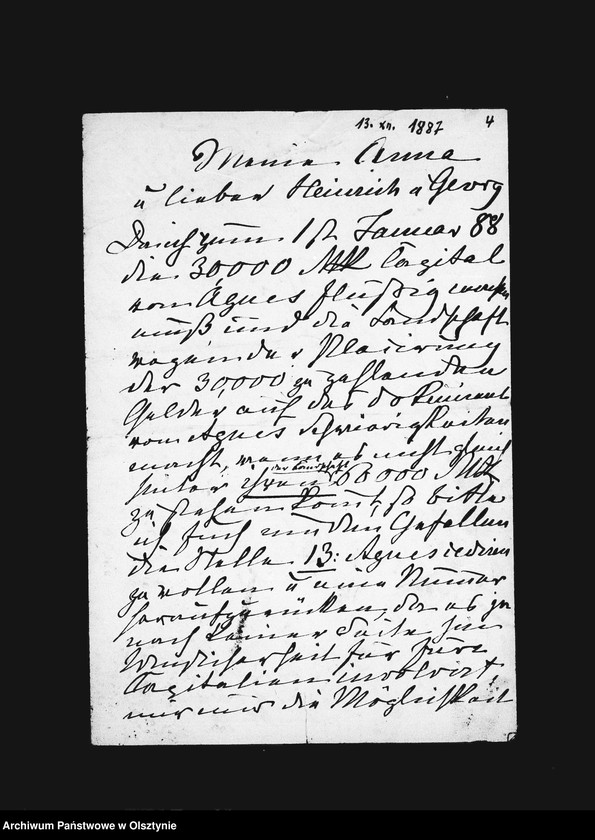 13. XII. 1887
4
Meine Anna
u lieber Heinrich u Georg
Da ich zum 1st Januar 88
die 30,000 Mk Capital
von Agnes flüssig machen
muß und die Landschaft
wegen der Placirung
der 30,000 zu zahlenden
Gelder auf das Dokument
von Agnes Schwierigkeiten
macht, wenn es nicht gleich
der Landschaft
hinter ihren 60000 Mk
zu stehen kömt, so bitte
ich Euch um den Gefallen
die Stelle 13: Agnes cediren
zu wollen u eine Numer
heraufzurücken, da es ja
nach keiner Seite hin
Unsicherheit für Eure
Capitalien involvirt,
nur mir die Möglichkeit
Archiwum Państwowe w Olsztynie